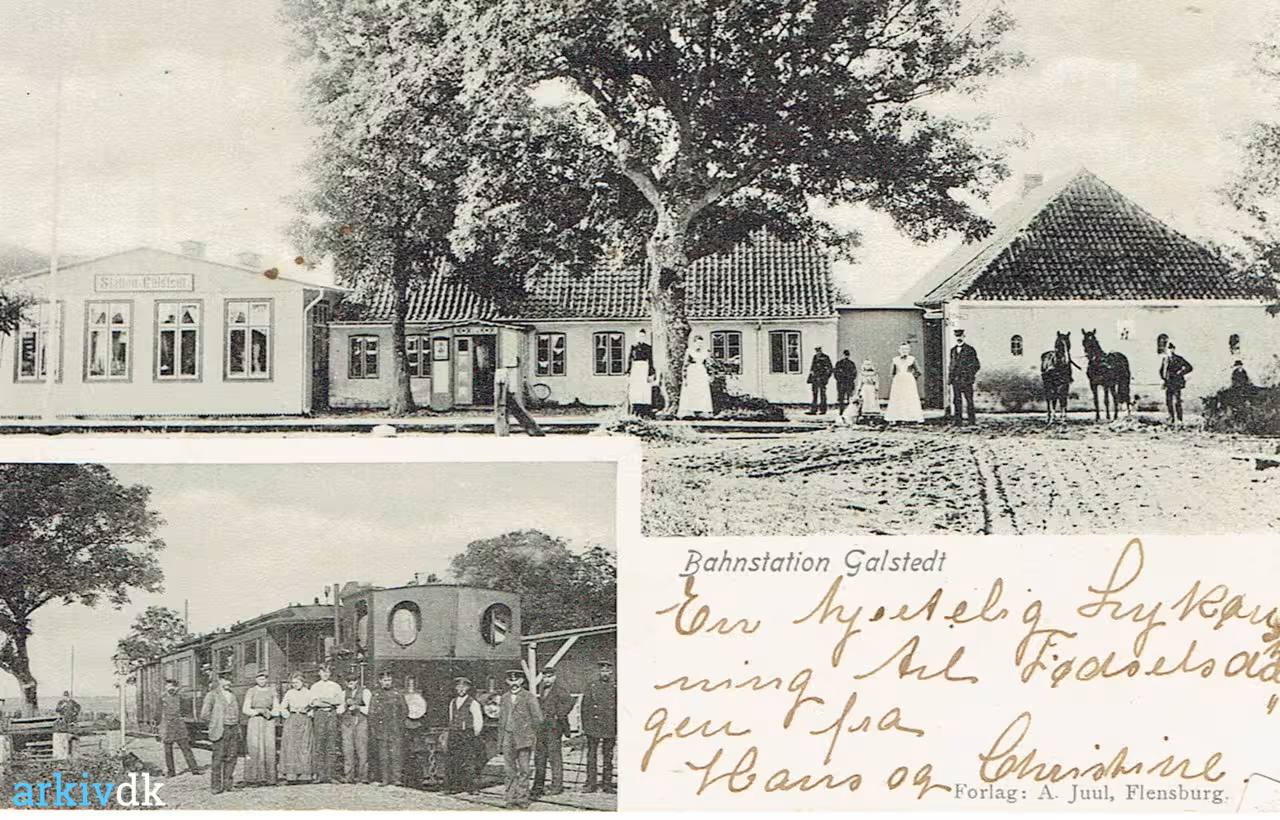 Station Galstedt.
Bahnstation Galstedt
En hjertelig Lykøn
ning til Fødselsda
gen fra
Hans og Christine
Forlag: A. Juul, Flensburg.
arkivdk